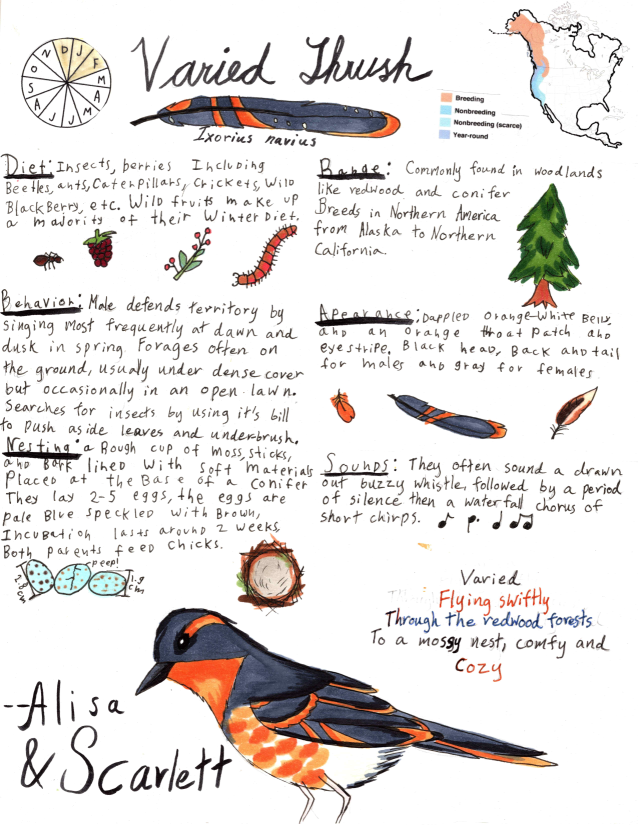 D J F M A M J J A S O N
Varied Thrush
Ixorius navius
Breeding
Nonbreeding
Nonbreeding (scarce)
Year-round
Diet: Insects, berries Including
Beetles, ants, Caterpillars, Crickets, Wild
BlackBerry, etc. Wild fruits make up
a majority of their Winter Diet.
Range: Commonly found in woodlands
like redwood and conifer
Breeds in Northern America
from Alaska to Northern
California.
Behavior: Male defends territory by
singing most frequently at dawn and
dusk in spring. Forages often on
the ground, usualy under dense cover
but occasionally in an open lawn.
Searches for insects by using it's bill
to push aside leaves and underbrush.
Apearance: Dappled Orange-White Belly
and an orange throat patch and
eyestripe. Black head, Back and tail
for males and gray for females
Nesting: a Rough cup of moss, sticks,
and Bark lined With soft materials
Placed at the Base of a Conifer
They lay 2-5 eggs, the eggs are
pale Blue speckled with Brown,
Incubation lasts around 2 weeks
Both parents feed chicks.
peep!
2.8 cm
1.9 cm
Sounds: They often sound a drawn
out buzzy whistle, followed by a period
of silence then a waterfall chorus of
short chirps.
Varied
Flying swiftly
Through the redwood forests
To a mossy nest, comfy and
Cozy
--Alisa
& Scarlett